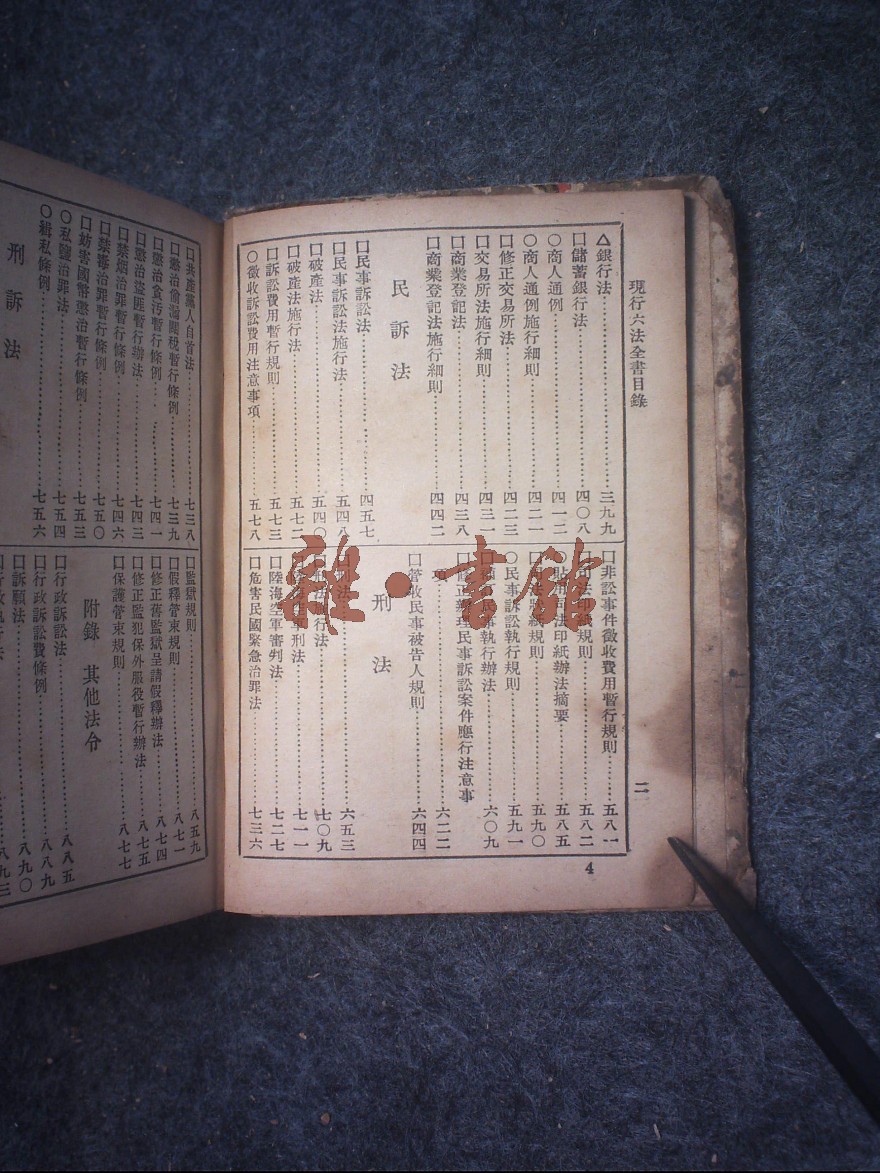 現行六法全書目錄
二
△銀行法……三九九
□儲蓄銀行法……四〇八
○商人通例……四一二
○商人通例施行細則……四二一
□修正交易所法……四二三
□交易所法施行細則……四三一
□商業登記法……四三八
□商業登記法施行細則……四四二
民訴法
□民事訴訟法……四五七
□民事訴訟法施行法……五四八
□破產法……五四〇
□破產法施行法……五七二
□訴訟費用暫行規則……五七三
○徵收訴訟費用注意事項……五七八
□非訟事件徵收費用暫行規則……五八一
□司法印紙規則……五八二
○貼用司法印紙辦法摘要……五八五
紙規則……五九〇
○民事訴訟執行規則……五九一
民事執行辦法……六〇九
□修正辦理民事訴訟案件應行注意事
項……六二二
□管收民事被告人規則……六四四
刑法
刑法……六五三
刑法施行法……七〇九
軍刑法……七一一
□陸海空軍審判法……七二七
□危害民國緊急治罪法……七三六
4
□共產黨人自首法……七三八
□懲治偷漏關稅暫行條例……七三九
□懲治貪污暫行條例……七四一
□懲治盜匪暫行辦法……七四四
□禁烟治罪暫行條例……七四六
□禁毒治罪暫行條例……七五〇
□妨害國幣懲治暫行條例……七五三
○私鹽治罪法……七五四
○緝私條例……七五六
刑訴法
□監獄規則……八五九
□假釋管束規則……八七一
□修正舊監獄呈請假釋辦法……八七四
□修正監犯保外服役暫行辦法……八七五
□保護管束規則……八七七
附錄 其他法令
□行政訴訟法……八八五
□行政訴訟費條例……八八九
□訴願法……八九〇
八九三
雜·書館